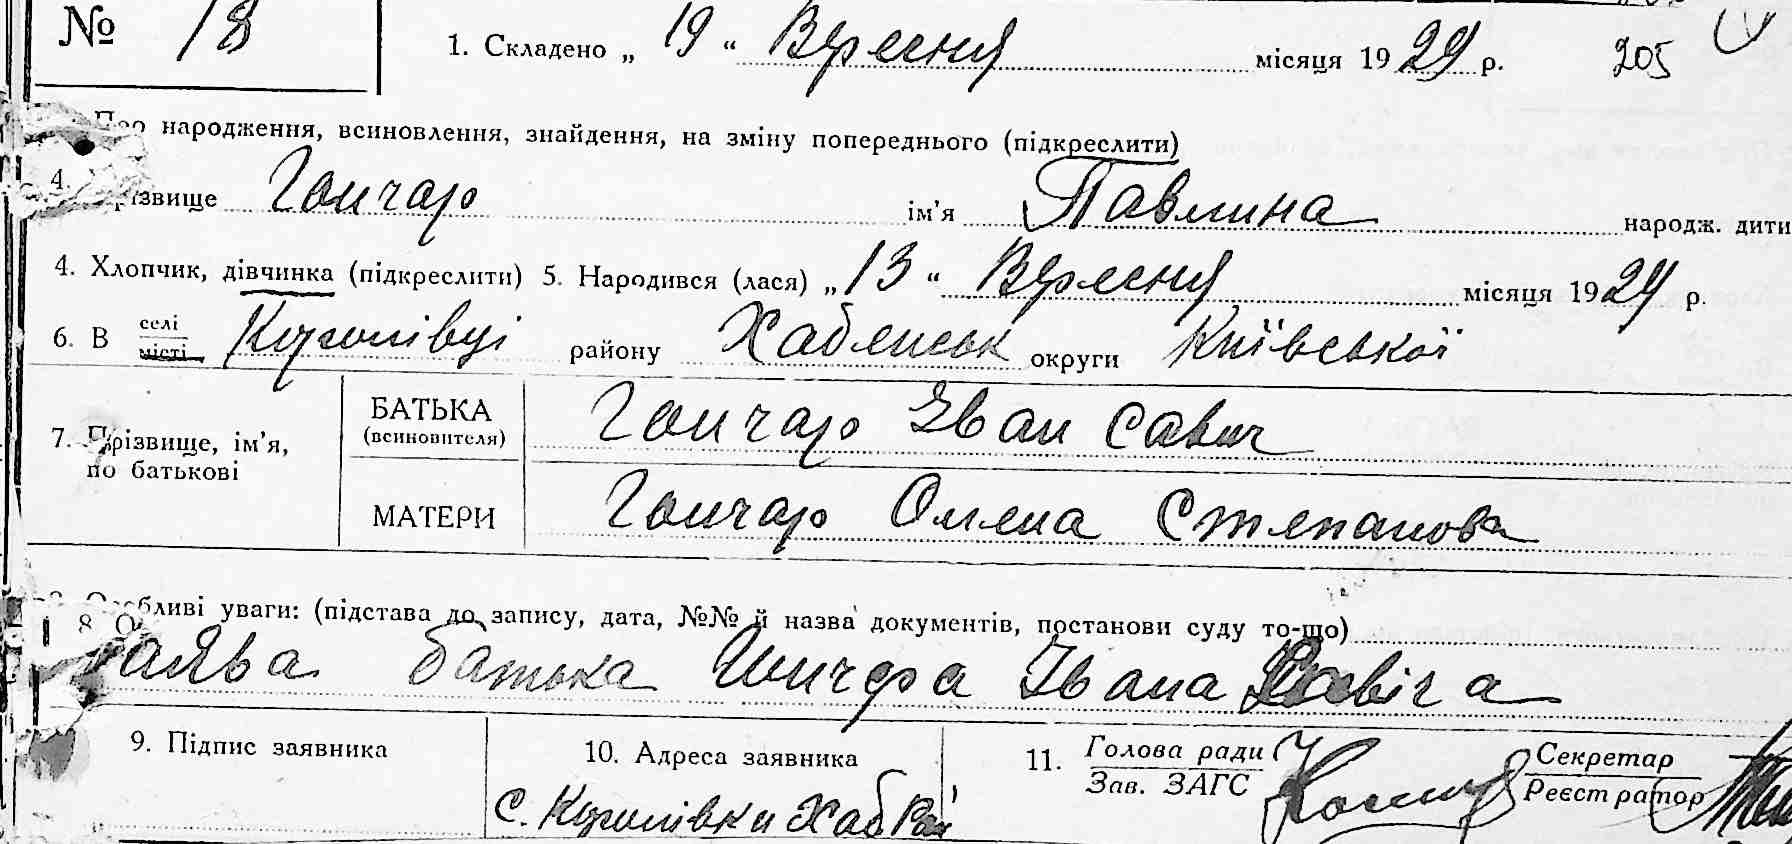 № 18
1. Складено „ 19 “ Вересня місяця 1929 р. 205
Про народження, всиновлення, знайдення, на зміну попереднього (підкреслити)
4. Прізвище Гончар ім’я Павлина народж. дити
4. Хлопчик, дівчинка (підкреслити) 5. Народився (лася) „ 13 “ Вересня місяця 1929 р.
6. В селі району Хабенськ округи Київської
місті
7. Прізвище, ім’я, по батькові
БАТЬКА (всиновителя) Гончар Іван Савич
МАТЕРИ Гончар Олена Степанова
8. Особливі уваги: (підстава до запису, дата, №№ й назва документів, постанови суду то-що)
Заява батька Гончара Івана Савіча
9. Підпис заявника
10. Адреса заявника
с. Хаб Рай
11. Голова ради
Зав. ЗАГС
Секретар
Реєстратор